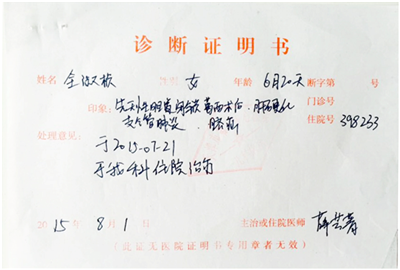 诊断证明书
姓名 金淑桢 性别 女 年龄 6月20天 断字第 号
印象：先天性胆道闭锁葛西术后、肝硬化 门诊号
支气管肺炎、脐疝 住院号 398233
处理意见：
于2015-07-21
于我科住院治疗
2015年8月1日 主治或住院医师 薛
（此证无医院证明书专用章者无效）